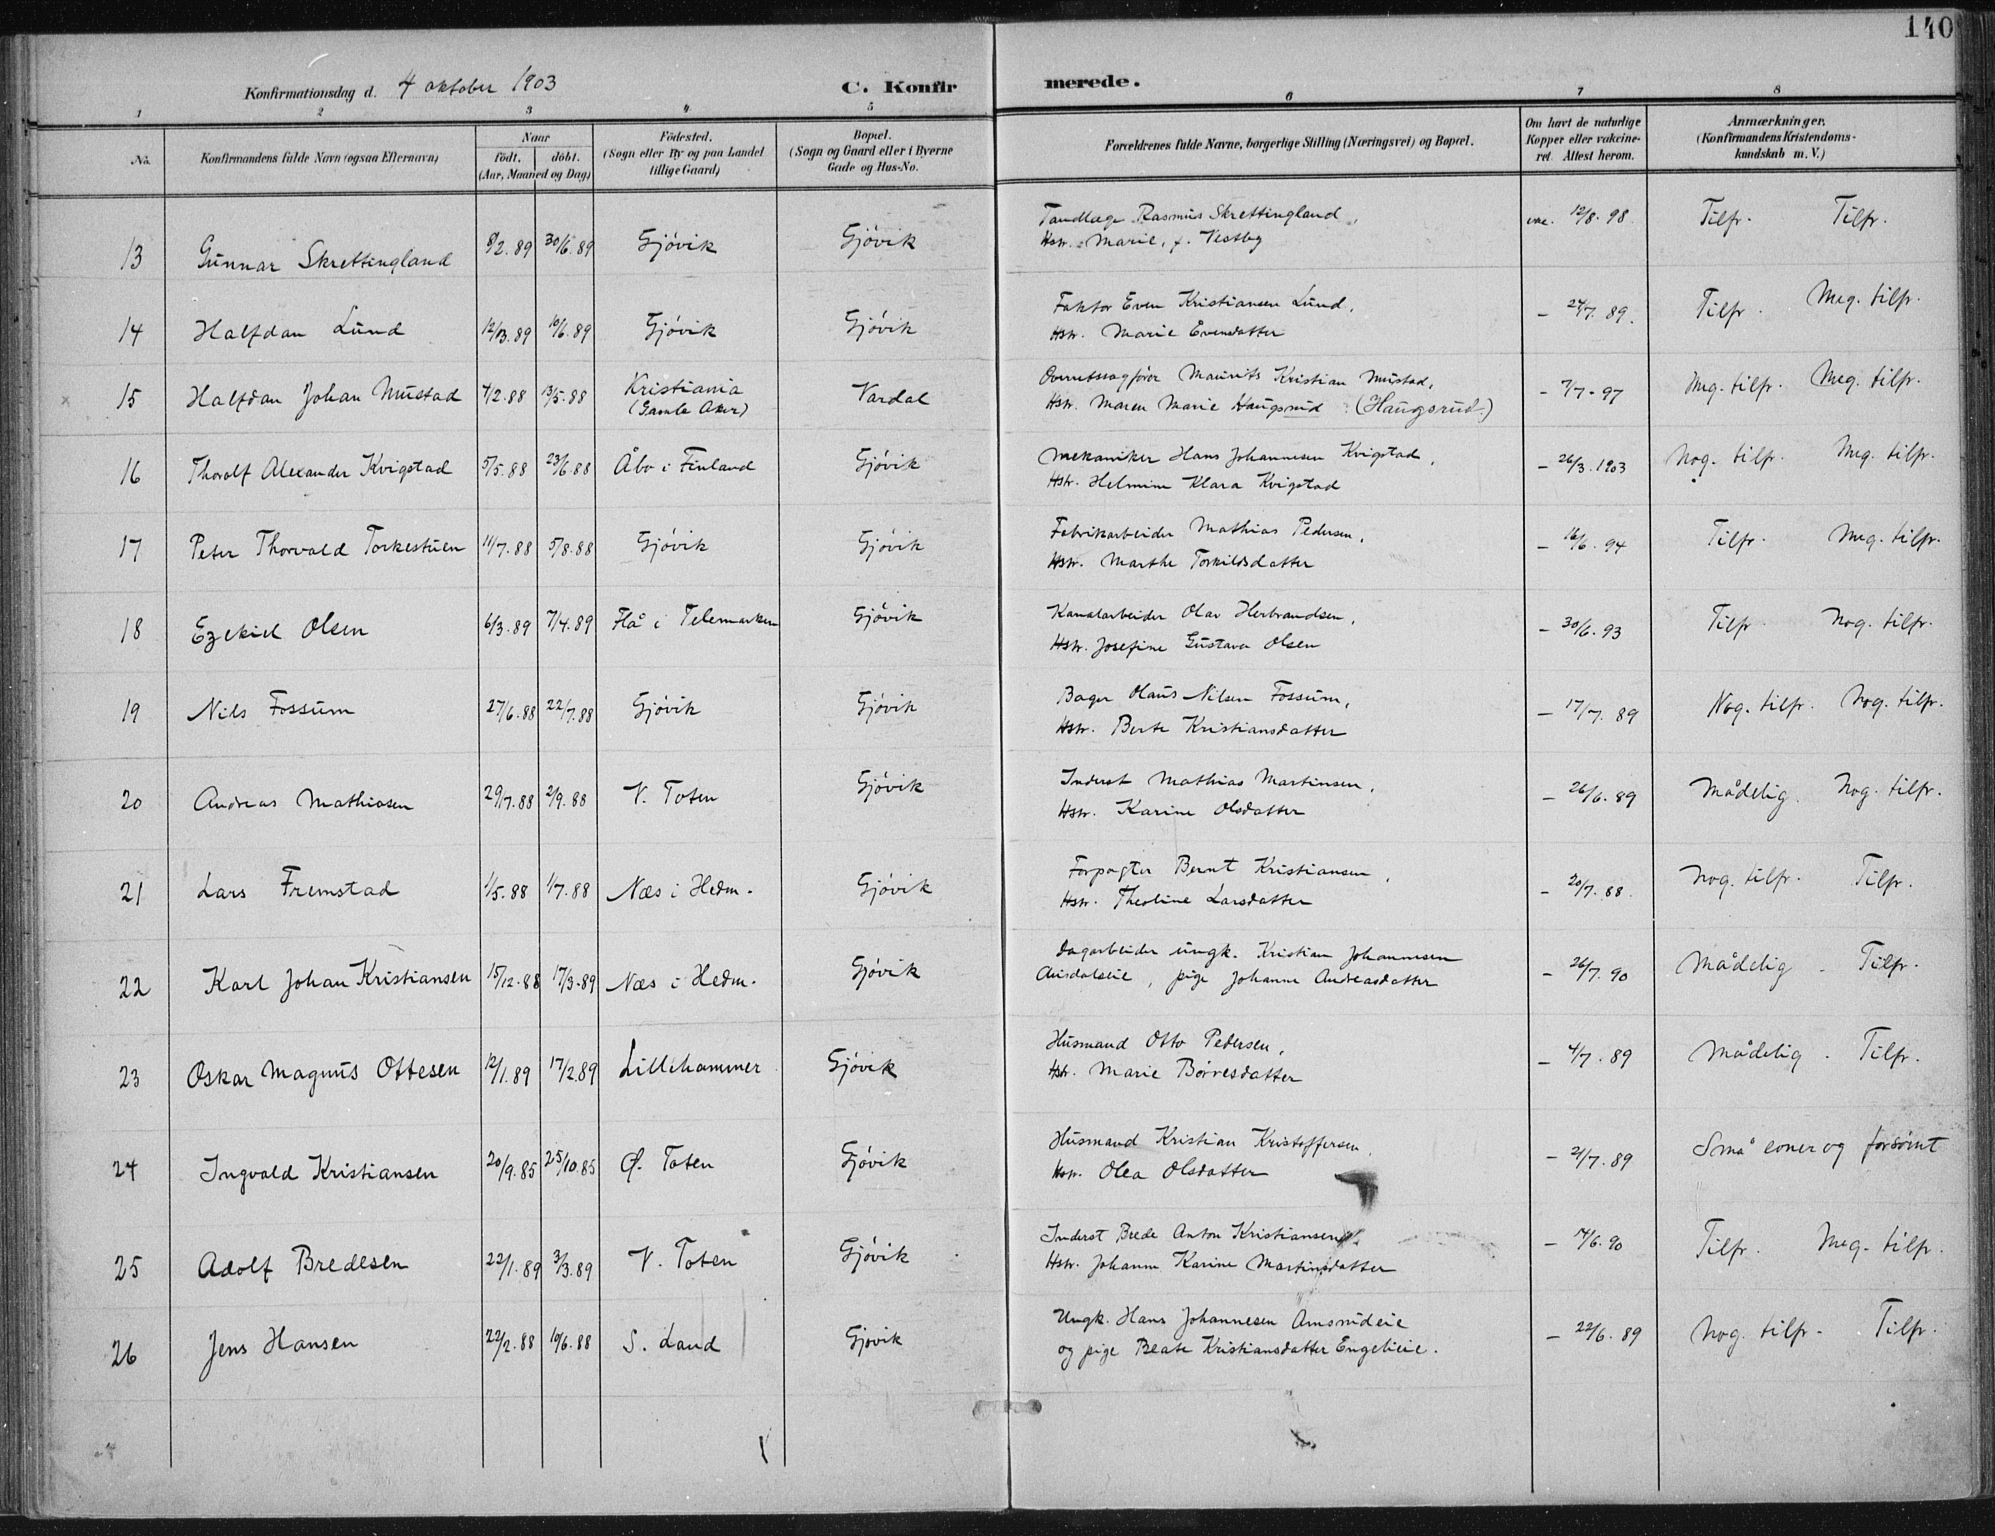 140
Konfirmationsdag d. 4 oktober 1903
C. Konfirmerede.
1 2 3 4 5 6 7 8
No. | Konfirmandens fulde Navn (ogsaa Efternavn) | Naar født. døbt. (Aar, Maaned og Dag) | Fødested. (Sogn eller By og paa Landet tillige Gaard) | Bopæl. (Sogn og Gaard eller i Byerne Gade og Hus-No. | Forældrenes fulde Navne, borgerlige Stilling (Næringsvei) og Bopæl. | Om havt de naturlige Kopper eller vakcineret. Attest herom. | Anmærkninger. (Konfirmandens Kristendomskundskab m. V.)
13 Gunnar Skrettingland 8/2.89 30/6.89 Gjövik Gjövik Tandlæge Rasmus Skrettingland, vac. 12/8.98 Tilfr. Tilfr.
Hstr. Marie, f. Vestby
14 Halfdan Lund 12/03.89 10/6.89 Gjövik Gjövik Faktor Even Kristiansen Lund, – 24/7.89. Tilfr. Meg. tilfr.
Hstr. Marie Evensdatter
15 Halfdan Johan Mustad 4/2.88 13/5.88 Kristiania (Gamle Aker) Vardal Overretssagfører Maurits Kristian Mustad, – 7/7-97 Meg. tilfr. Meg. tilfr.
Hstr. Maren Marie Haugsrud (Haugsrud.)
16 Thoralf Alexander Kvigstad 5/5.88 23/6.88 Åbo i Finland Gjövik Mekaniker Hans Johannesen Kvigstad, – 26/3.1903 Nog. tilfr. Meg. tilfr.
Hstr. Helmine Klara Kvigstad
17 Peter Thorvald Torkestuen 11/7.88 5/8.88 Gjövik Gjövik Fabrikarbeider Mathias Pedersen, – 16/6.94 Tilfr. Meg. tilfr.
Hstr. Marthe Torkildsdatter
18 Ezekiel Olsen 6/3.89 7/4.89 Flå i Telemarken Gjövik Kanalarbeider Olav Herbrandsen, – 30/6.93 Tilfr. Nog. tilfr.
Hstr. Josefine Gustava Olsen
19 Nils Fossum 27/6.88 22/7.88 Gjövik Gjövik Bager Olaus Nilsen Fossum, – 17/7.89 Nog. tilfr. Nog. tilfr.
Hstr. Berte Kristiansdatter
20 Andreas Mathiasen 29/7.88 2/9.88 V. Toten Gjövik Inderst Mathias Martinsen, – 26/6.89 Mådelig. Nog. tilfr.
Hstr. Karine Olsdatter
21 Lars Fremstad 1/5.88 1/7.88 Næs i Hedm. Gjövik Forpagter Bernt Kristiansen, – 20/7.88. Nog. tilfr. Tilfr.
Hstr. Theoline Larsdatter
22 Karl Johan Kristiansen 15/12.88 17/3.89 Næs i Hedm. Gjövik Dagarbeider ungk. Kristian Johannesen – 26/7.90 Mådelig. Tilfr.
, pige Johanne Andreasdatter
23 Oskar Magnus Ottesen 12/1.89 17/2.89 Lillehammer Gjövik Husmand Otto Pedersen, – 4/7.89 Mådelig. Tilfr.
Hstr. Marie Börresdatter
24 Ingvald Kristiansen 20/9.85 25/10.85 Ø. Toten Gjövik Husmand Kristian Kristoffersen, – 2/7.89 Små evner og forsömt
Hstr. Olea Olsdatter
25 Adolf Bredesen 22/1.89 3/3.89 V. Toten Gjövik Inderst Brede Anton Kristiansen, – 14/6.90 Tilfr. Meg. tilfr.
Hstr. Johanne Karine Martinsdatter
26 Jens Hansen 22/2.88 10/6.88 S. Land Gjövik Ungk. Hans Johannesen Amsrudeie – 22/6.89 Nog. tilfr. Tilfr.
og pige Beate Kristiansdatter Engelieie.